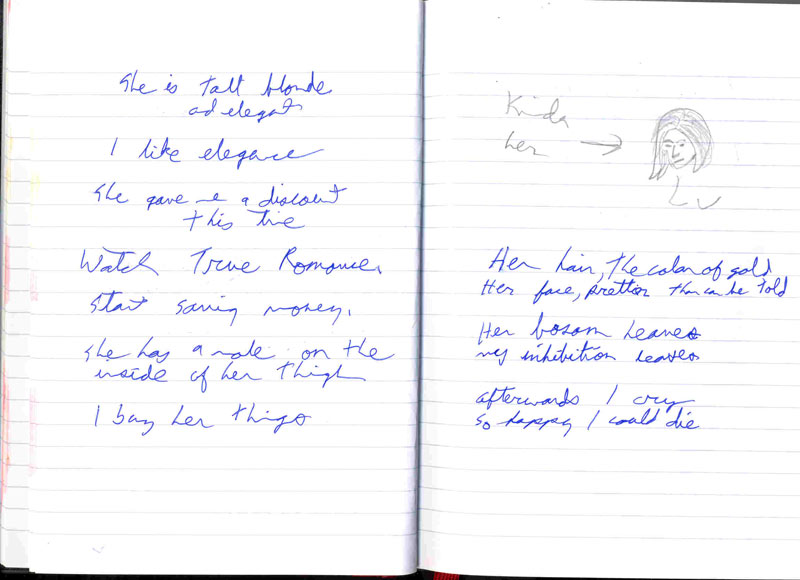 She is tall blonde
ad elegat
I like elegance
She gave me a discount
this time
Watch True Romance.
Start saving money.
She has a mole on the
inside of her thigh
I buy her things
Kinda
her →
Lu
Her hair, the color of gold
Her face, prettier than can be told
Her bosom heaves
my inhibition leaves
afterwards I cry
so happy I could die